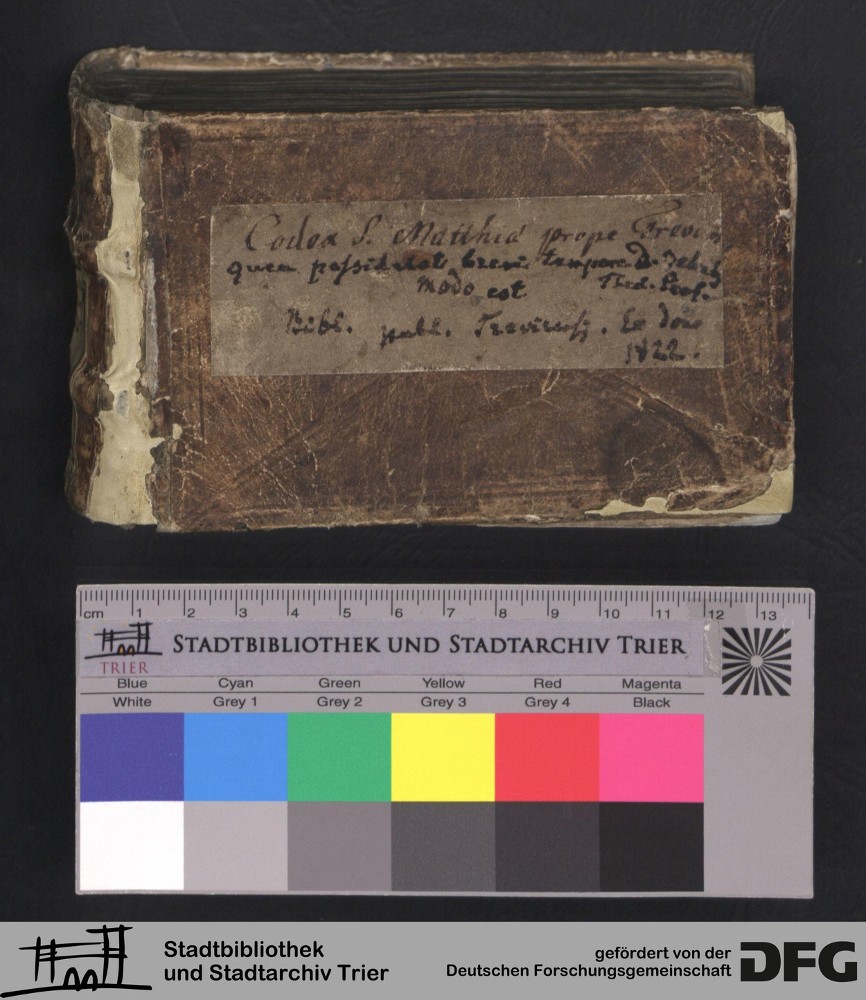 Codex S. Matthiae prope Trevir
quem possidebat brevi tempore D.
modo est Theol. Prof.
Bibl. publ. Trevirensis. Ex dono
1822.
cm 1 2 3 4 5 6 7 8 9 10 11 12 13
TRIER
STADTBIBLIOTHEK UND STADTARCHIV TRIER
Blue Cyan Green Yellow Red Magenta
White Grey 1 Grey 2 Grey 3 Grey 4 Black
Stadtbibliothek
und Stadtarchiv Trier
gefördert von der
Deutschen Forschungsgemeinschaft
DFG